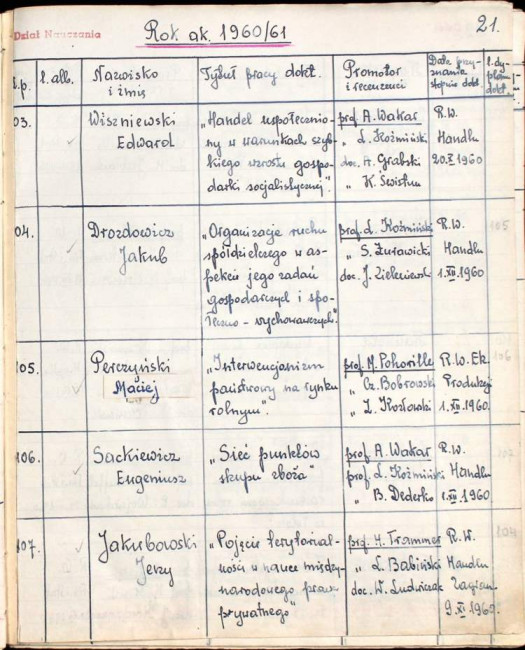 Rok ak. 1960/61
21.
Dział Nauczania
l.p.
l. alb.
Nazwisko
i imię
Tytuł pracy dokt.
Promotor
i recenzenci
Data przy-
znania
stopnia dokt.
l. dy-
plomu
dokt.
03.
Wiszniewski
Edward
„Handel uspołecznio-
ny w warunkach szyb-
kiego wzrostu gospo-
darki socjalistycznej".
prof. A. Wakar
„ L. Koźmiński
doc. A. Grabski
„ K.
R.W.
Handlu
20.X.1960
04.
Drozdowicz
Jakub
„Organizacje ruchu
spółdzielczego w as-
pekcie jego zadań
gospodarczych i spo-
łeczno-wychowawczych"
prof. L. Koźmiński
„ S. Żurawicki
doc. J.
R.W.
Handlu
1.XII.1960
105.
Perczyński
Maciej
„Interwencjonizm
państwowy na rynku
rolnym".
prof. M. Pohorille
„ Cz. Bobrowski
„ L. Kozłowski
R.W. Ek.
Produkcji
1.XII.1960.
106.
Sackiewicz
Eugeniusz
„Sieć punktów
skupu zboża"
prof. A. Wakar
prof. L. Koźmiński
„ B. Dederko
R.W.
Handlu
1.XII.1960.
107.
Jakubowski
Jerzy
„Pojęcie terytorial-
ności w nauce między-
narodowego prawa
prywatnego"
prof. H. Trammer
„ L. Babiński
doc. W. Ludwiczak
R.W.
Handlu
Zagran.
9.XI.1960.